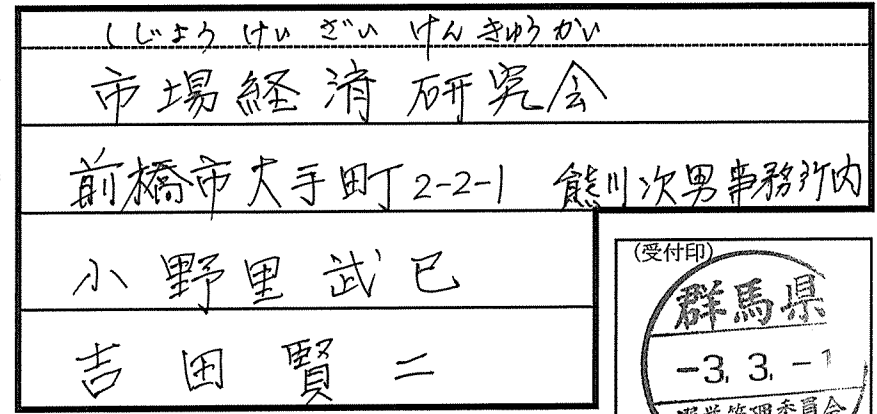 しじょう けい ざい けん きゅう かい
市場経済研究会
前橋市大手町2-2-1 熊川次男事務所内
小野里武巳
吉田賢二
(受付印)
群馬県
-3. 3. -1
選挙管理委員会